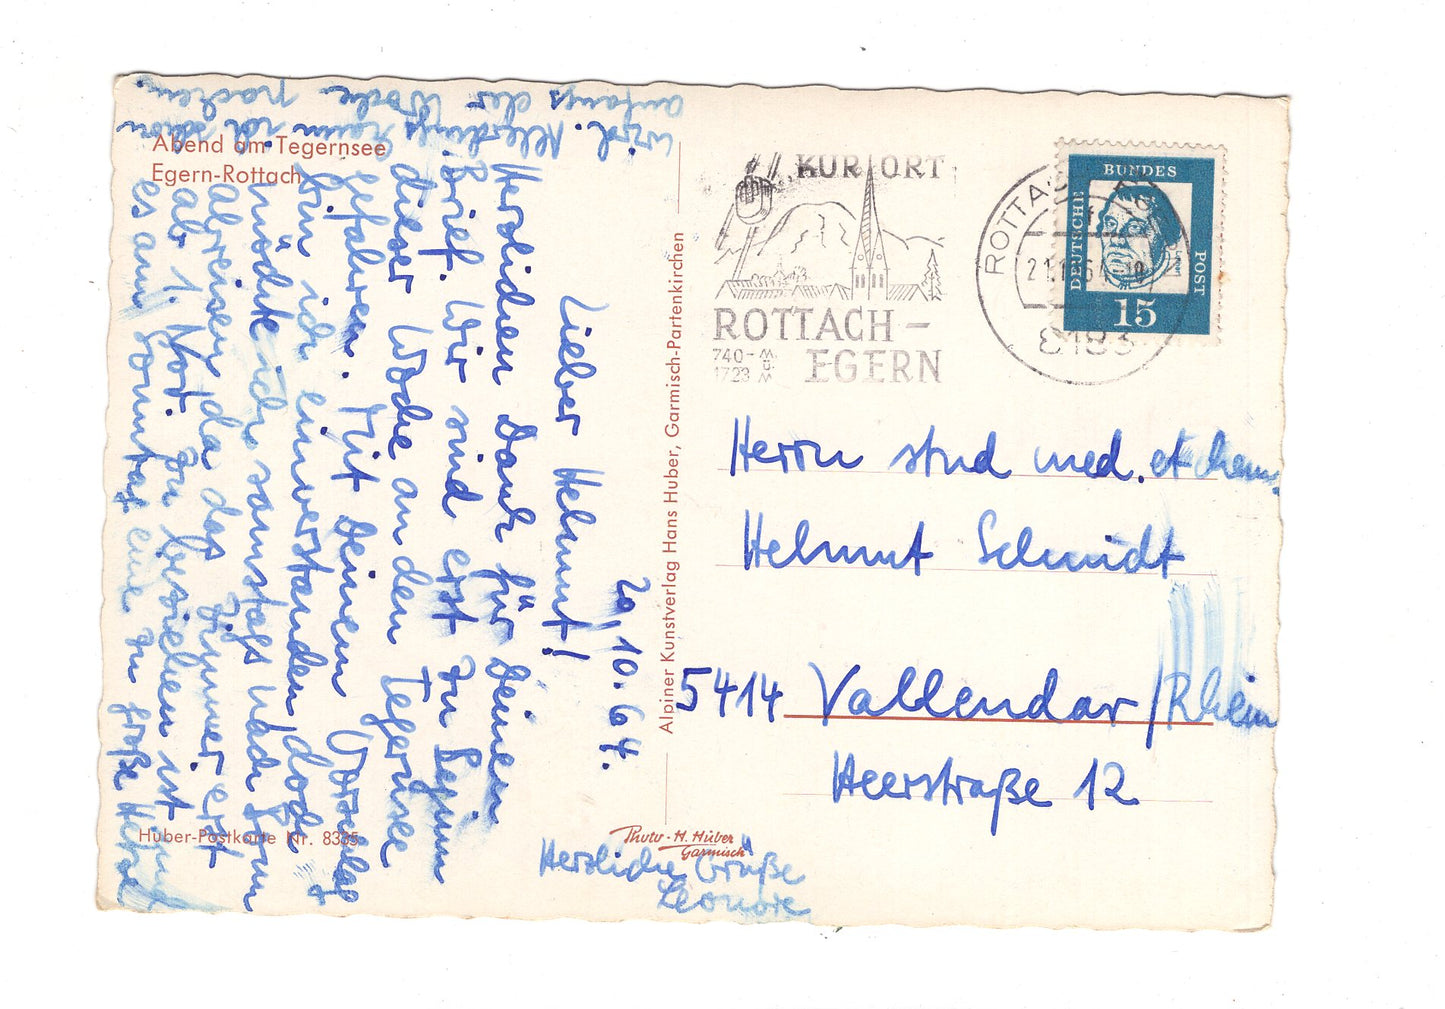 Abend am Tegernsee
Egern-Rottach
20.10.64.
Lieber Helmut!
Herzlichen Dank für Deinen
Brief. Wir sind erst zu Beginn
dieser Woche an den Tegernsee
gefahren. Mit Deinem Vorschlag
bin ich einverstanden, doch
möchte ich samstags nach Bonn
abreisen, da das Zimmer erst
ab 1. Nov. zu beziehen ist und
es am Sonntag eine zu große Hetze
wird. Allerdings kann ich schon
anfangs der Woche packen.
Herzliche Grüße
Leonore
Huber-Postkarte Nr. 8335
Photo-H. Huber
Garmisch
Alpiner Kunstverlag Hans Huber, Garmisch-Partenkirchen
KURORT
ROTTACH-
EGERN
740-
1723
m.
ü.
M
ROTTACH
8183
DEUTSCHE
BUNDES
POST
15
Herrn stud med. et chem.
Helmut Schmidt
5414 Vallendar/Rhein
Heerstraße 12